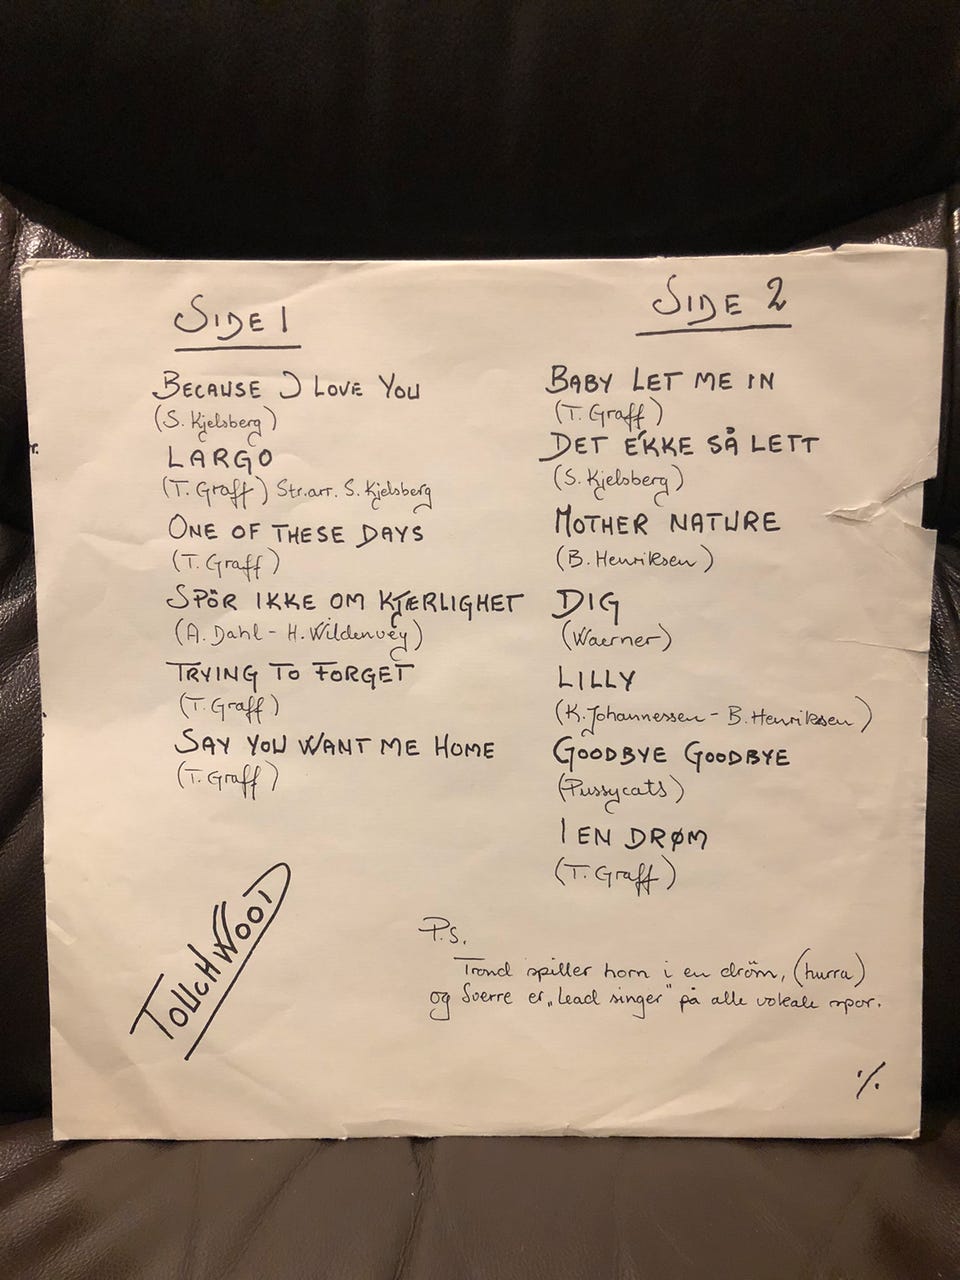 SIDE 1
BECAUSE I LOVE YOU
(S. Kjelsberg)
LARGO
(T. Graff) Str.arr. S. Kjelsberg
ONE OF THESE DAYS
(T. Graff)
SPÖR IKKE OM KJÆRLIGHET
(A. Dahl - H. Wildenvey)
TRYING TO FORGET
(T. Graff)
SAY YOU WANT ME HOME
(T. Graff)
SIDE 2
BABY LET ME IN
(T. Graff)
DET E'KKE SÅ LETT
(S. Kjelsberg)
MOTHER NATURE
(B. Henriksen)
DIG
(Waerner)
LILLY
(K. Johannessen - B. Henriksen)
GOODBYE GOODBYE
(Pussycats)
I EN DRØM
(T. Graff)
TOUCHWOOD
P.S.
Trond spiller horn i en dröm, (hurra)
og Sverre er „Lead singer" på alle vokale spor.
·/.